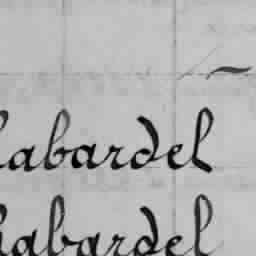 labardel
habardel